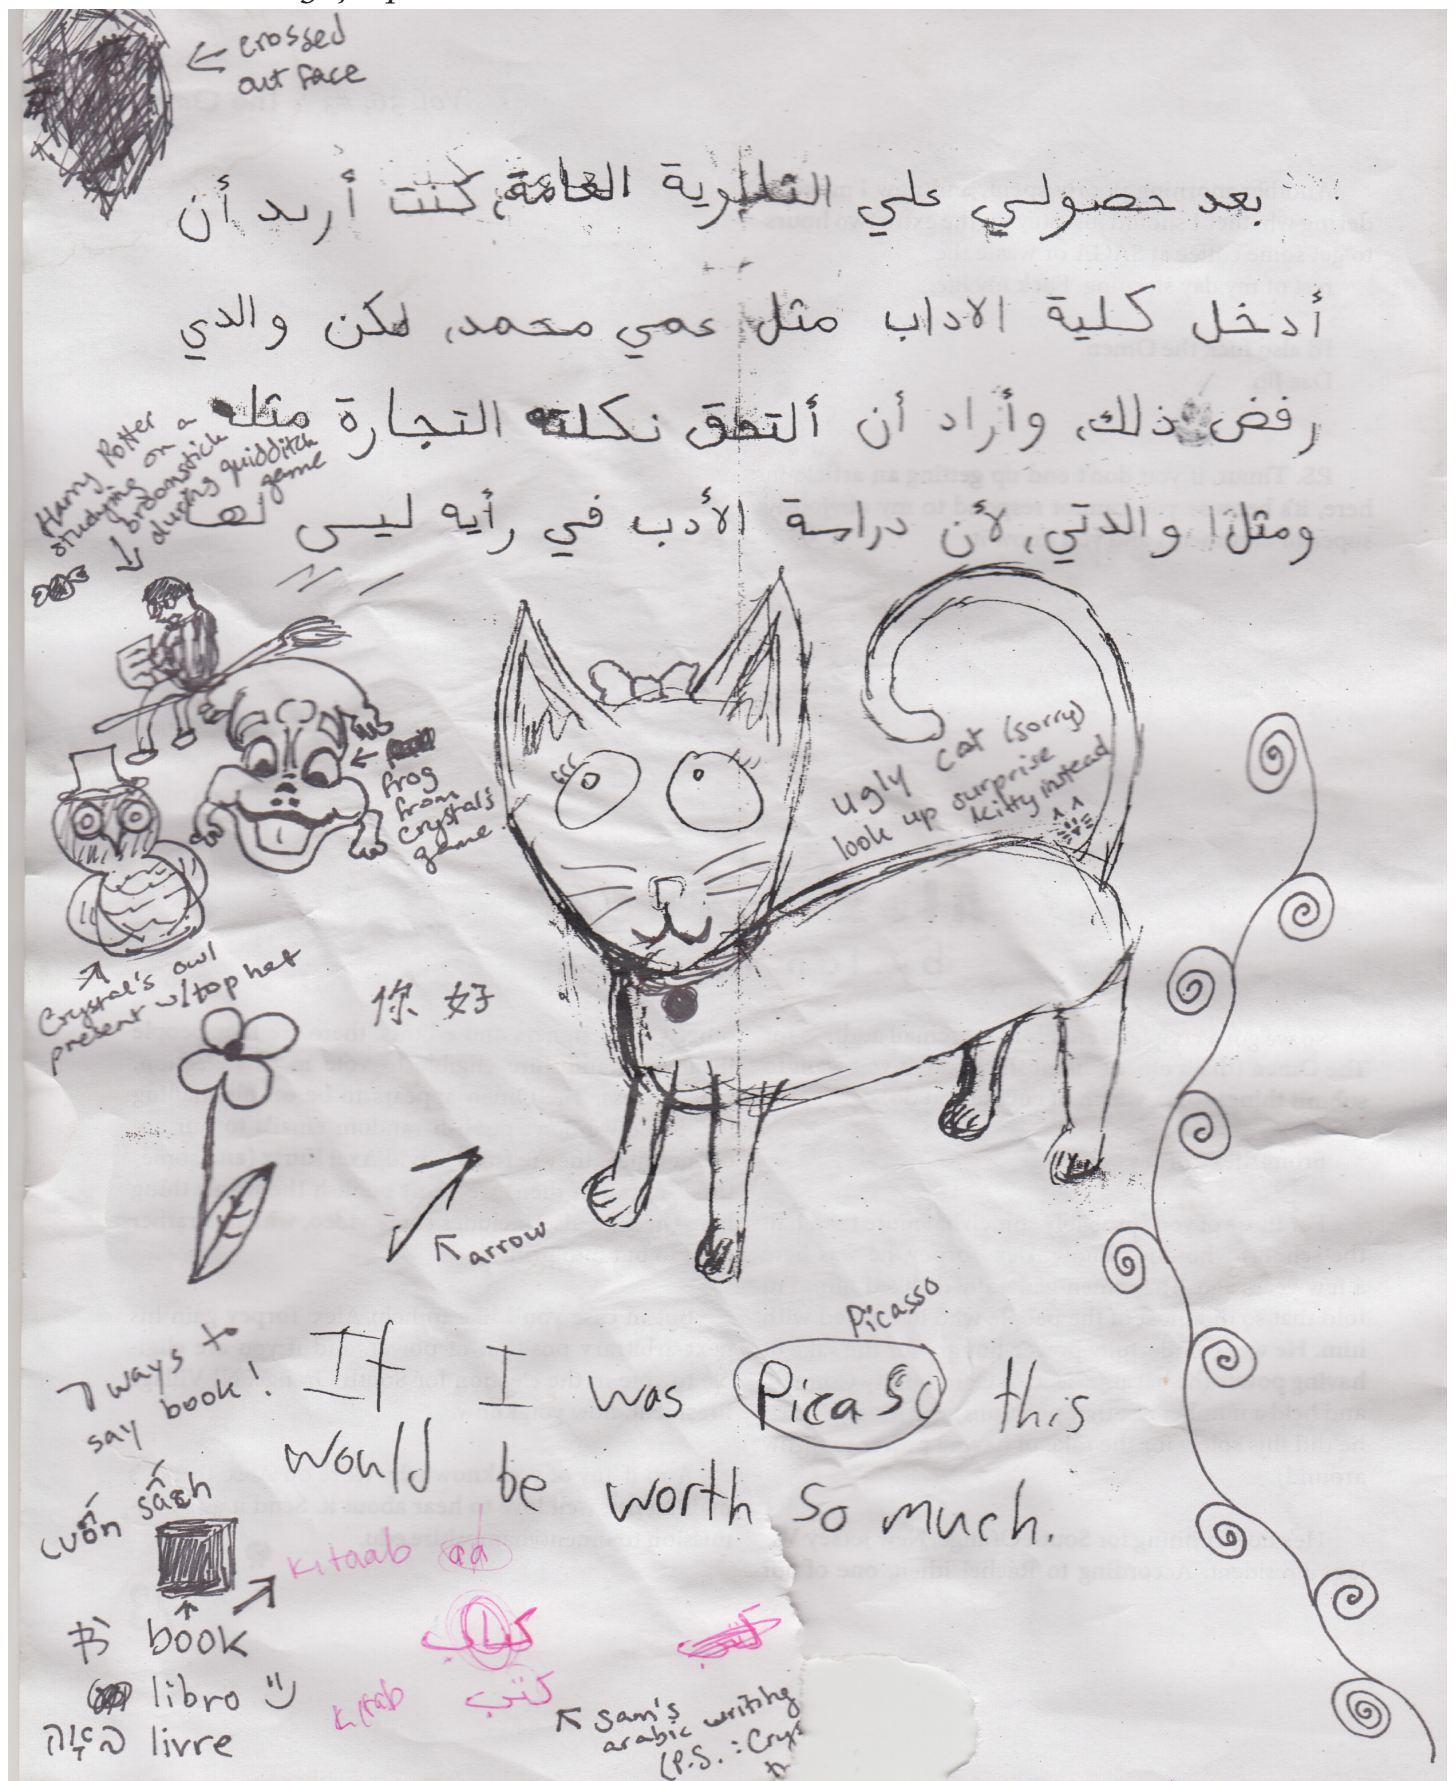 ← crossed
out face
بعد حصولي علي الثانوية العامة، كنت أريد أن
أدخل كلية الاداب مثل عمي محمد، لكن والدي
رفض ذلك، وأراد أن ألتحق التجارة مثله
ومثل والدتي، لأن دراسة الأدب في رأيه ليس لها
Harry Potter
studying on a
broomstick
during quidditch
game
frog
from
Crystal's
game
ugly cat (sorry)
look up surprise
kitty instead
Crystal's owl
present w/top hat
你好
arrow
Picasso
If I was PicaSo this
would be worth so much.
7 ways to
say book!
cuốn sách
kitaab aa
书 book
كتاب
libro
kitab كتب
livre
Sam's
arabic writing
(P.S.: Crys